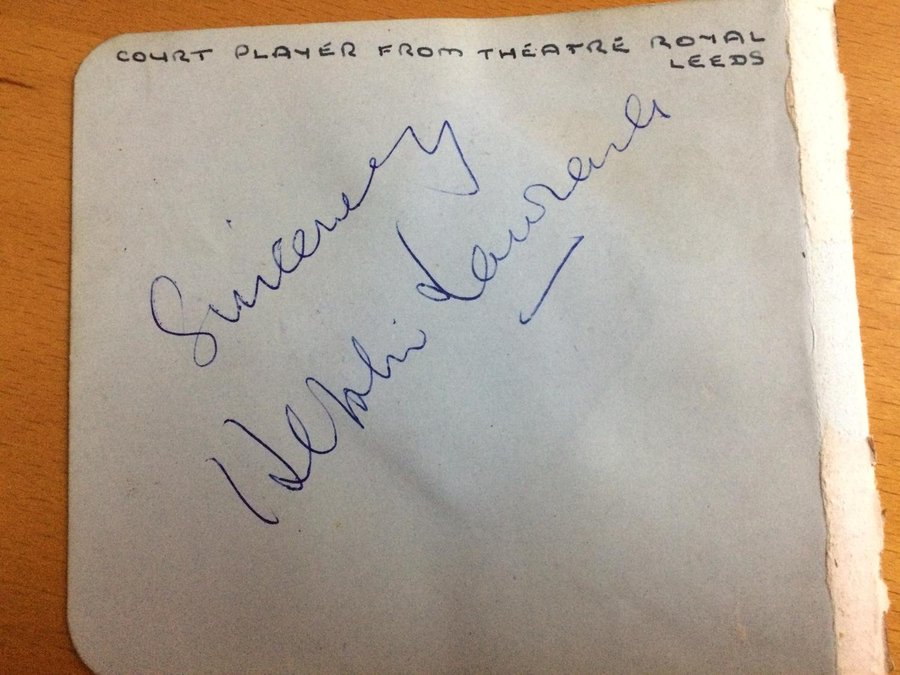 COURT PLAYER FROM THEATRE ROYAL
LEEDS
Sincerely
Delphi Lawrence